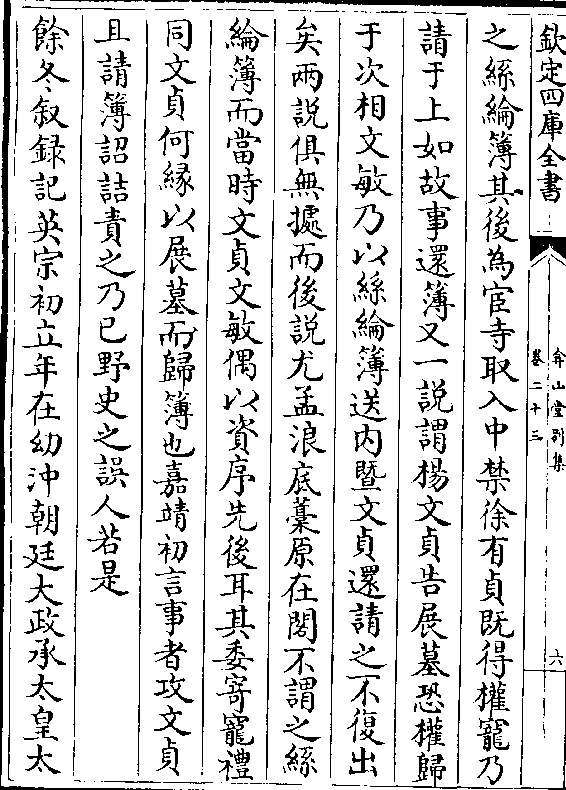 欽定四庫全書
弇山堂別集
卷二十三
六
之絲綸簿其後為宦寺取入中禁徐有貞既得權寵乃
請于上如故事還簿又一說謂楊文貞告展墓恐權歸
于次相文敏乃以絲綸簿送内暨文貞還請之不復出
矣兩說俱無㨿而後說尤孟浪底藁原在閣不謂之絲
綸簿而當時文貞文敏偶以資序先後耳其委寄寵禮
同文貞何縁以展墓而歸簿也嘉靖初言事者攻文貞
且請簿詔詰責之乃已野史之誤人若是
餘冬叙録記英宗初立年在幼沖朝廷大政承太皇太